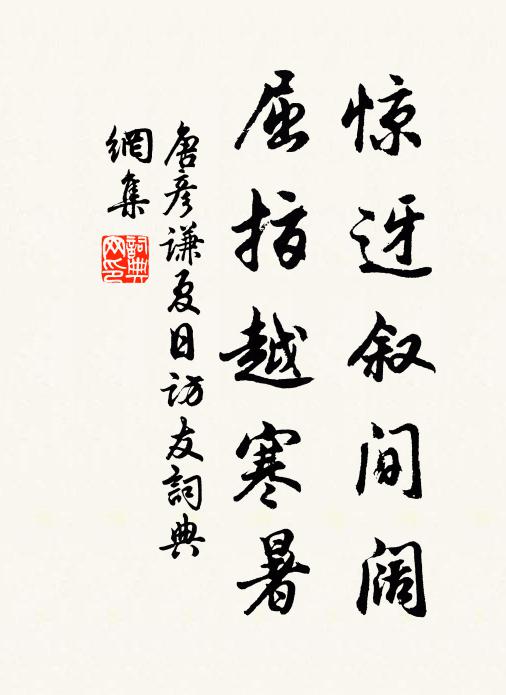 惊迓叙间阔
屈指越寒暑
唐彦谦夏日访友詞典
網集
詞典
网印